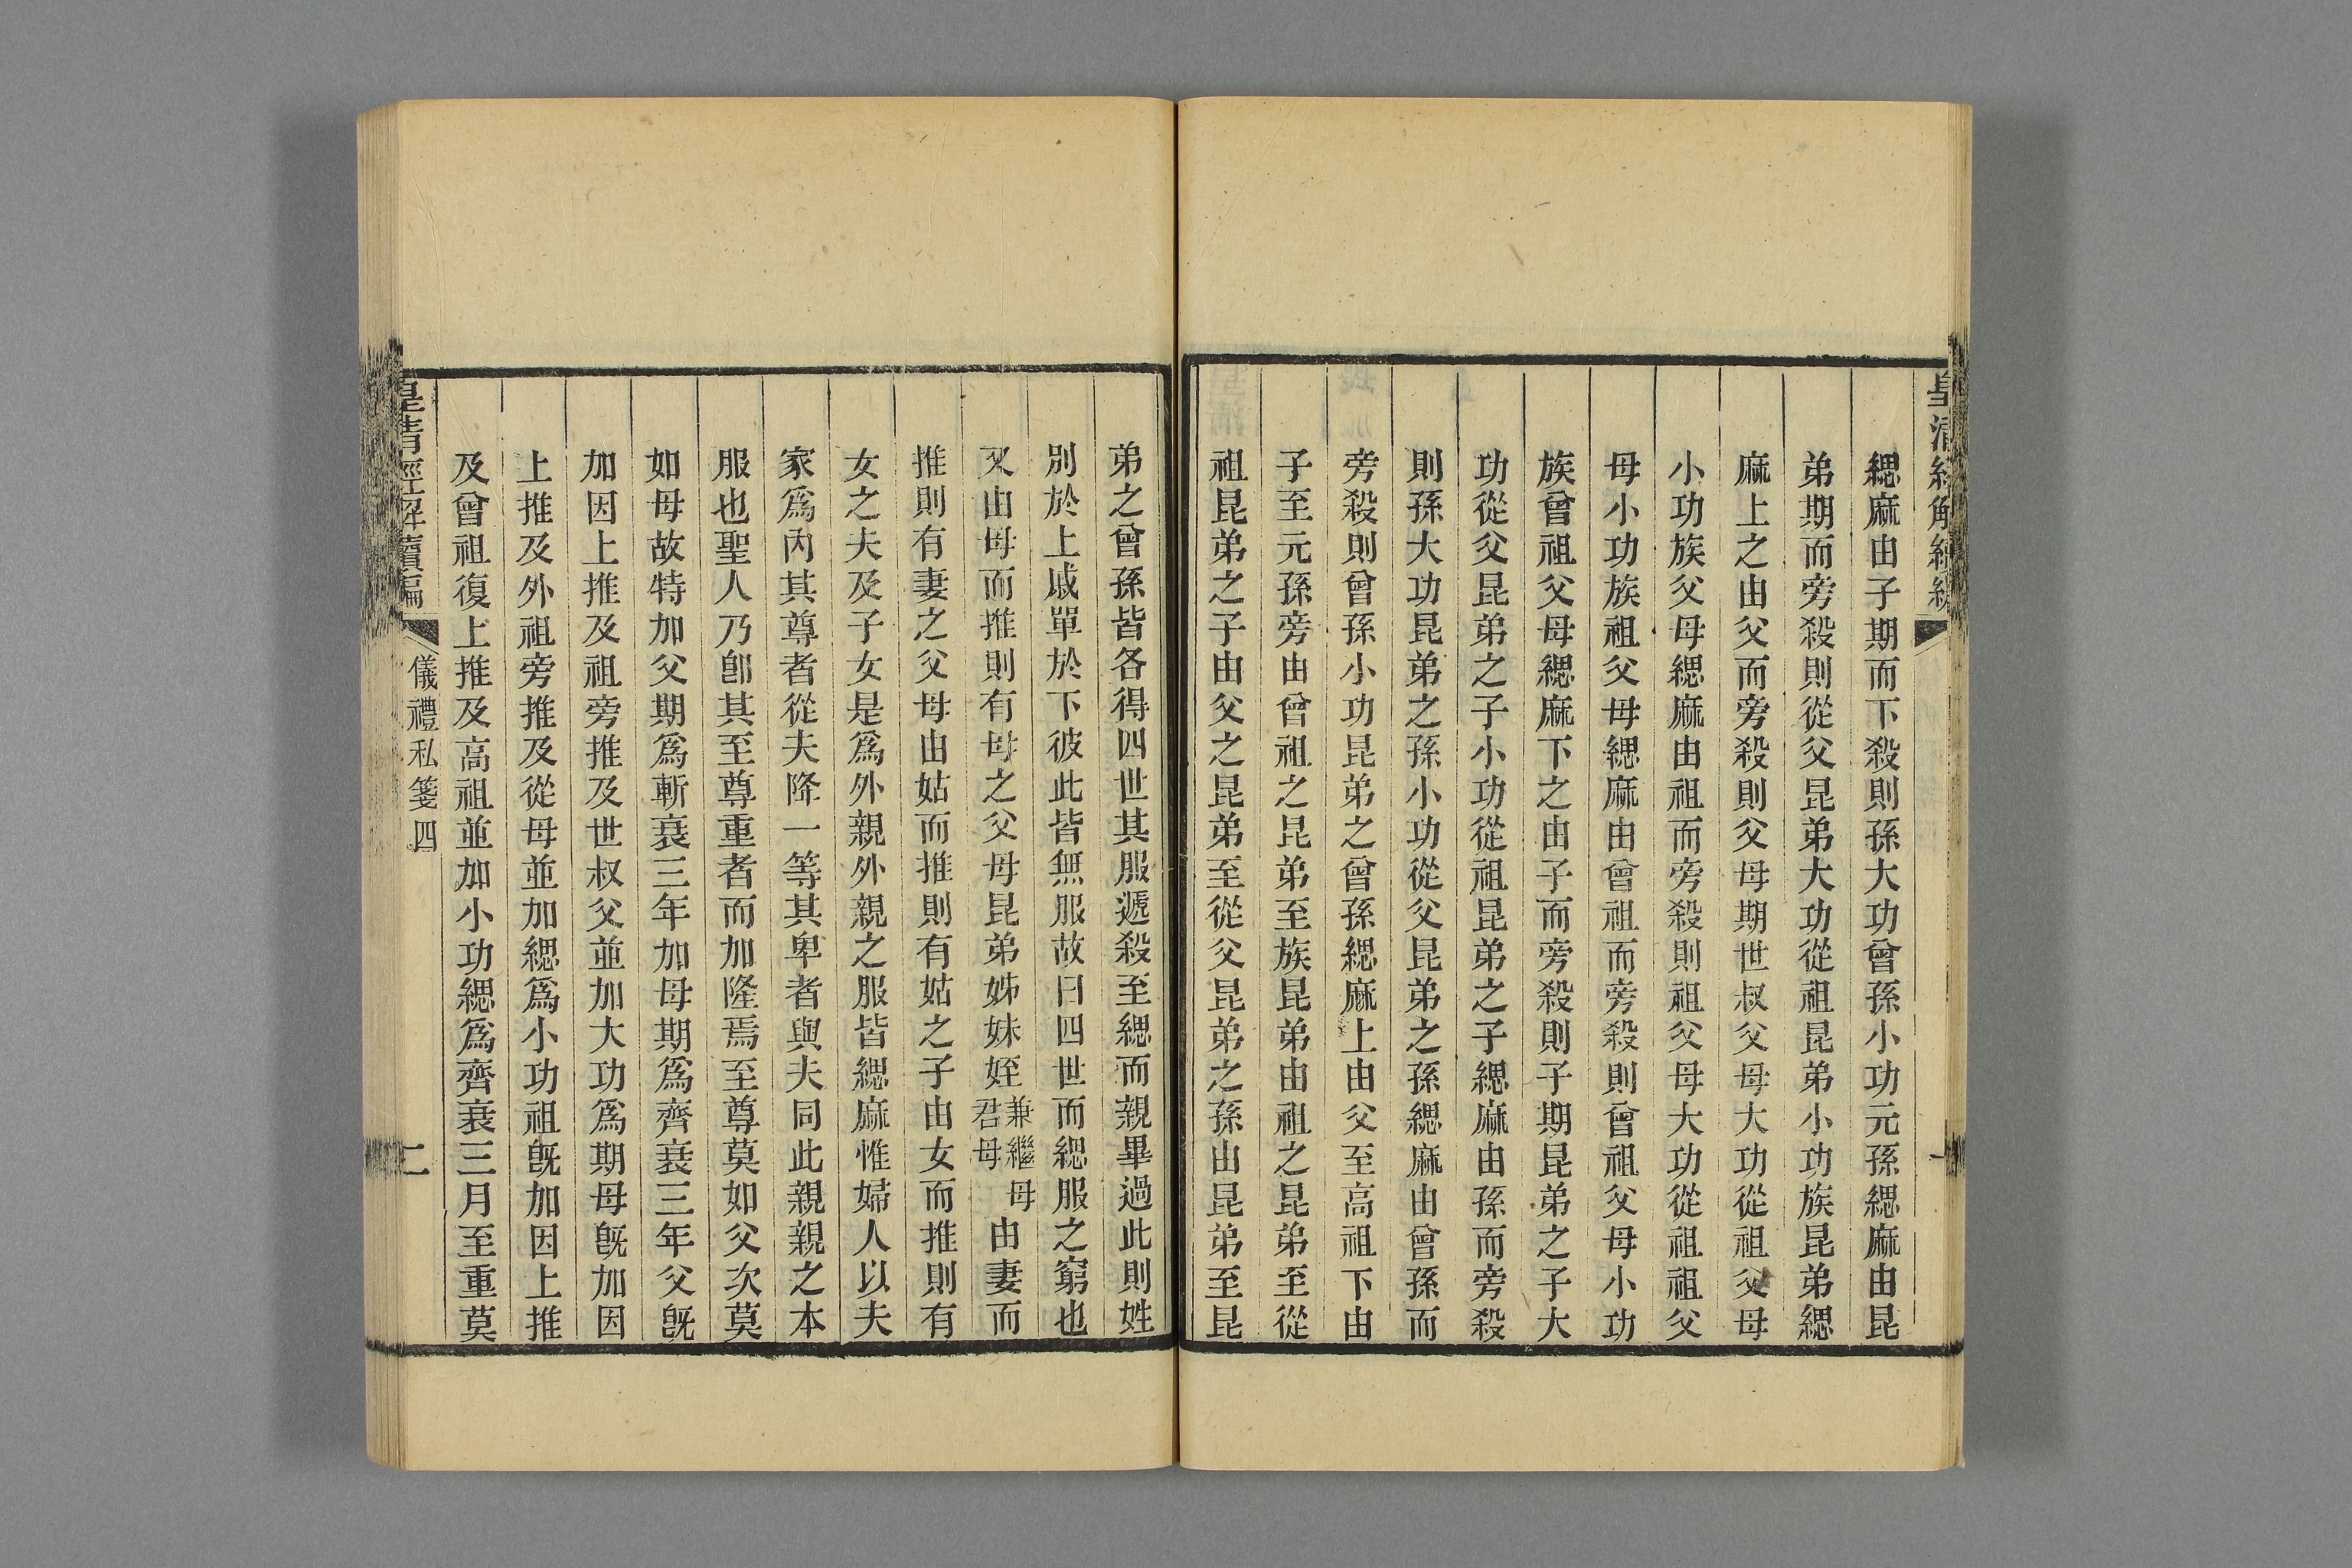 皇清經解續編
緦麻由子期而下殺則孫大功曾孫小功元孫緦麻由昆
弟期而旁殺則從父昆弟大功從祖昆弟小功族昆弟緦
麻上之由父而旁殺則父母期世叔父母大功從祖父母
小功族父母緦麻由祖而旁殺則祖父母大功從祖祖父
母小功族祖父母緦麻由曾祖而旁殺則曾祖父母小功
族曾祖父母緦麻下之由子而旁殺則子期昆弟之子大
功從父昆弟之子小功從祖昆弟之子緦麻由孫而旁殺
則孫大功昆弟之孫小功從父昆弟之孫緦麻由曾孫而
旁殺則曾孫小功昆弟之曾孫緦麻上由父至高祖下由
子至元孫旁由曾祖之昆弟至族昆弟由祖之昆弟至從
祖昆弟之子由父之昆弟至從父昆弟之孫由昆弟至昆
弟之曾孫皆各得四世其服遞殺至緦而親畢過此則姓
別於上戚單於下彼此皆無服故曰四世而緦服之窮也
又由母而推則有母之父母昆弟姊妹姪兼繼母君母由妻而
推則有妻之父母由姑而推則有姑之子由女而推則有
女之夫及子女是爲外親外親之服皆緦麻惟婦人以夫
家爲內其尊者從夫降一等其卑者與夫同此親親之本
服也聖人乃卽其至尊重者而加隆焉至尊莫如父次莫
如母故特加父期爲斬衰三年加母期爲齊衰三年父旣
加因上推及祖旁推及世叔父並加大功爲期母旣加因
上推及外祖旁推及從母並加緦爲小功祖旣加因上推
及曾祖復上推及高祖並加小功緦爲齊衰三月至重莫
皇清經解續編
儀禮私箋四
二